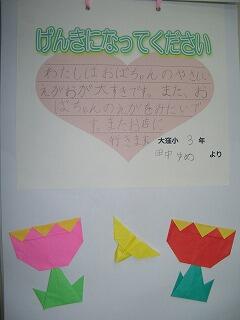 げんきになってください
わたしはおばちゃんのやさしい
えがおが大すきです。また、お
ばちゃんのえがをみたいで
す。またお店に
行きます
大窪小 3年
田中 ゆめ より